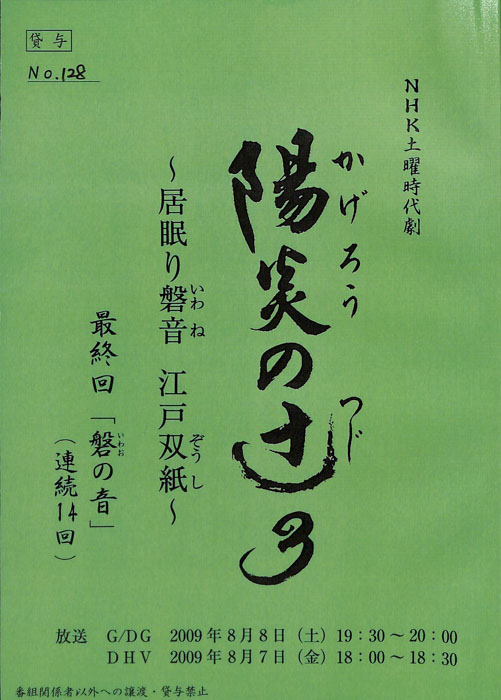 貸与
No.128
NHK土曜時代劇
陽炎の辻3
かげろう
つじ
〜居眠り磐音 江戸双紙〜
いわね
ぞうし
最終回「磐の音」
いわお
（連続14回）
放送 G/DG 2009年8月8日（土）19：30〜20：00
DHV 2009年8月7日（金）18：00〜18：30
番組関係者以外への譲渡・貸与禁止